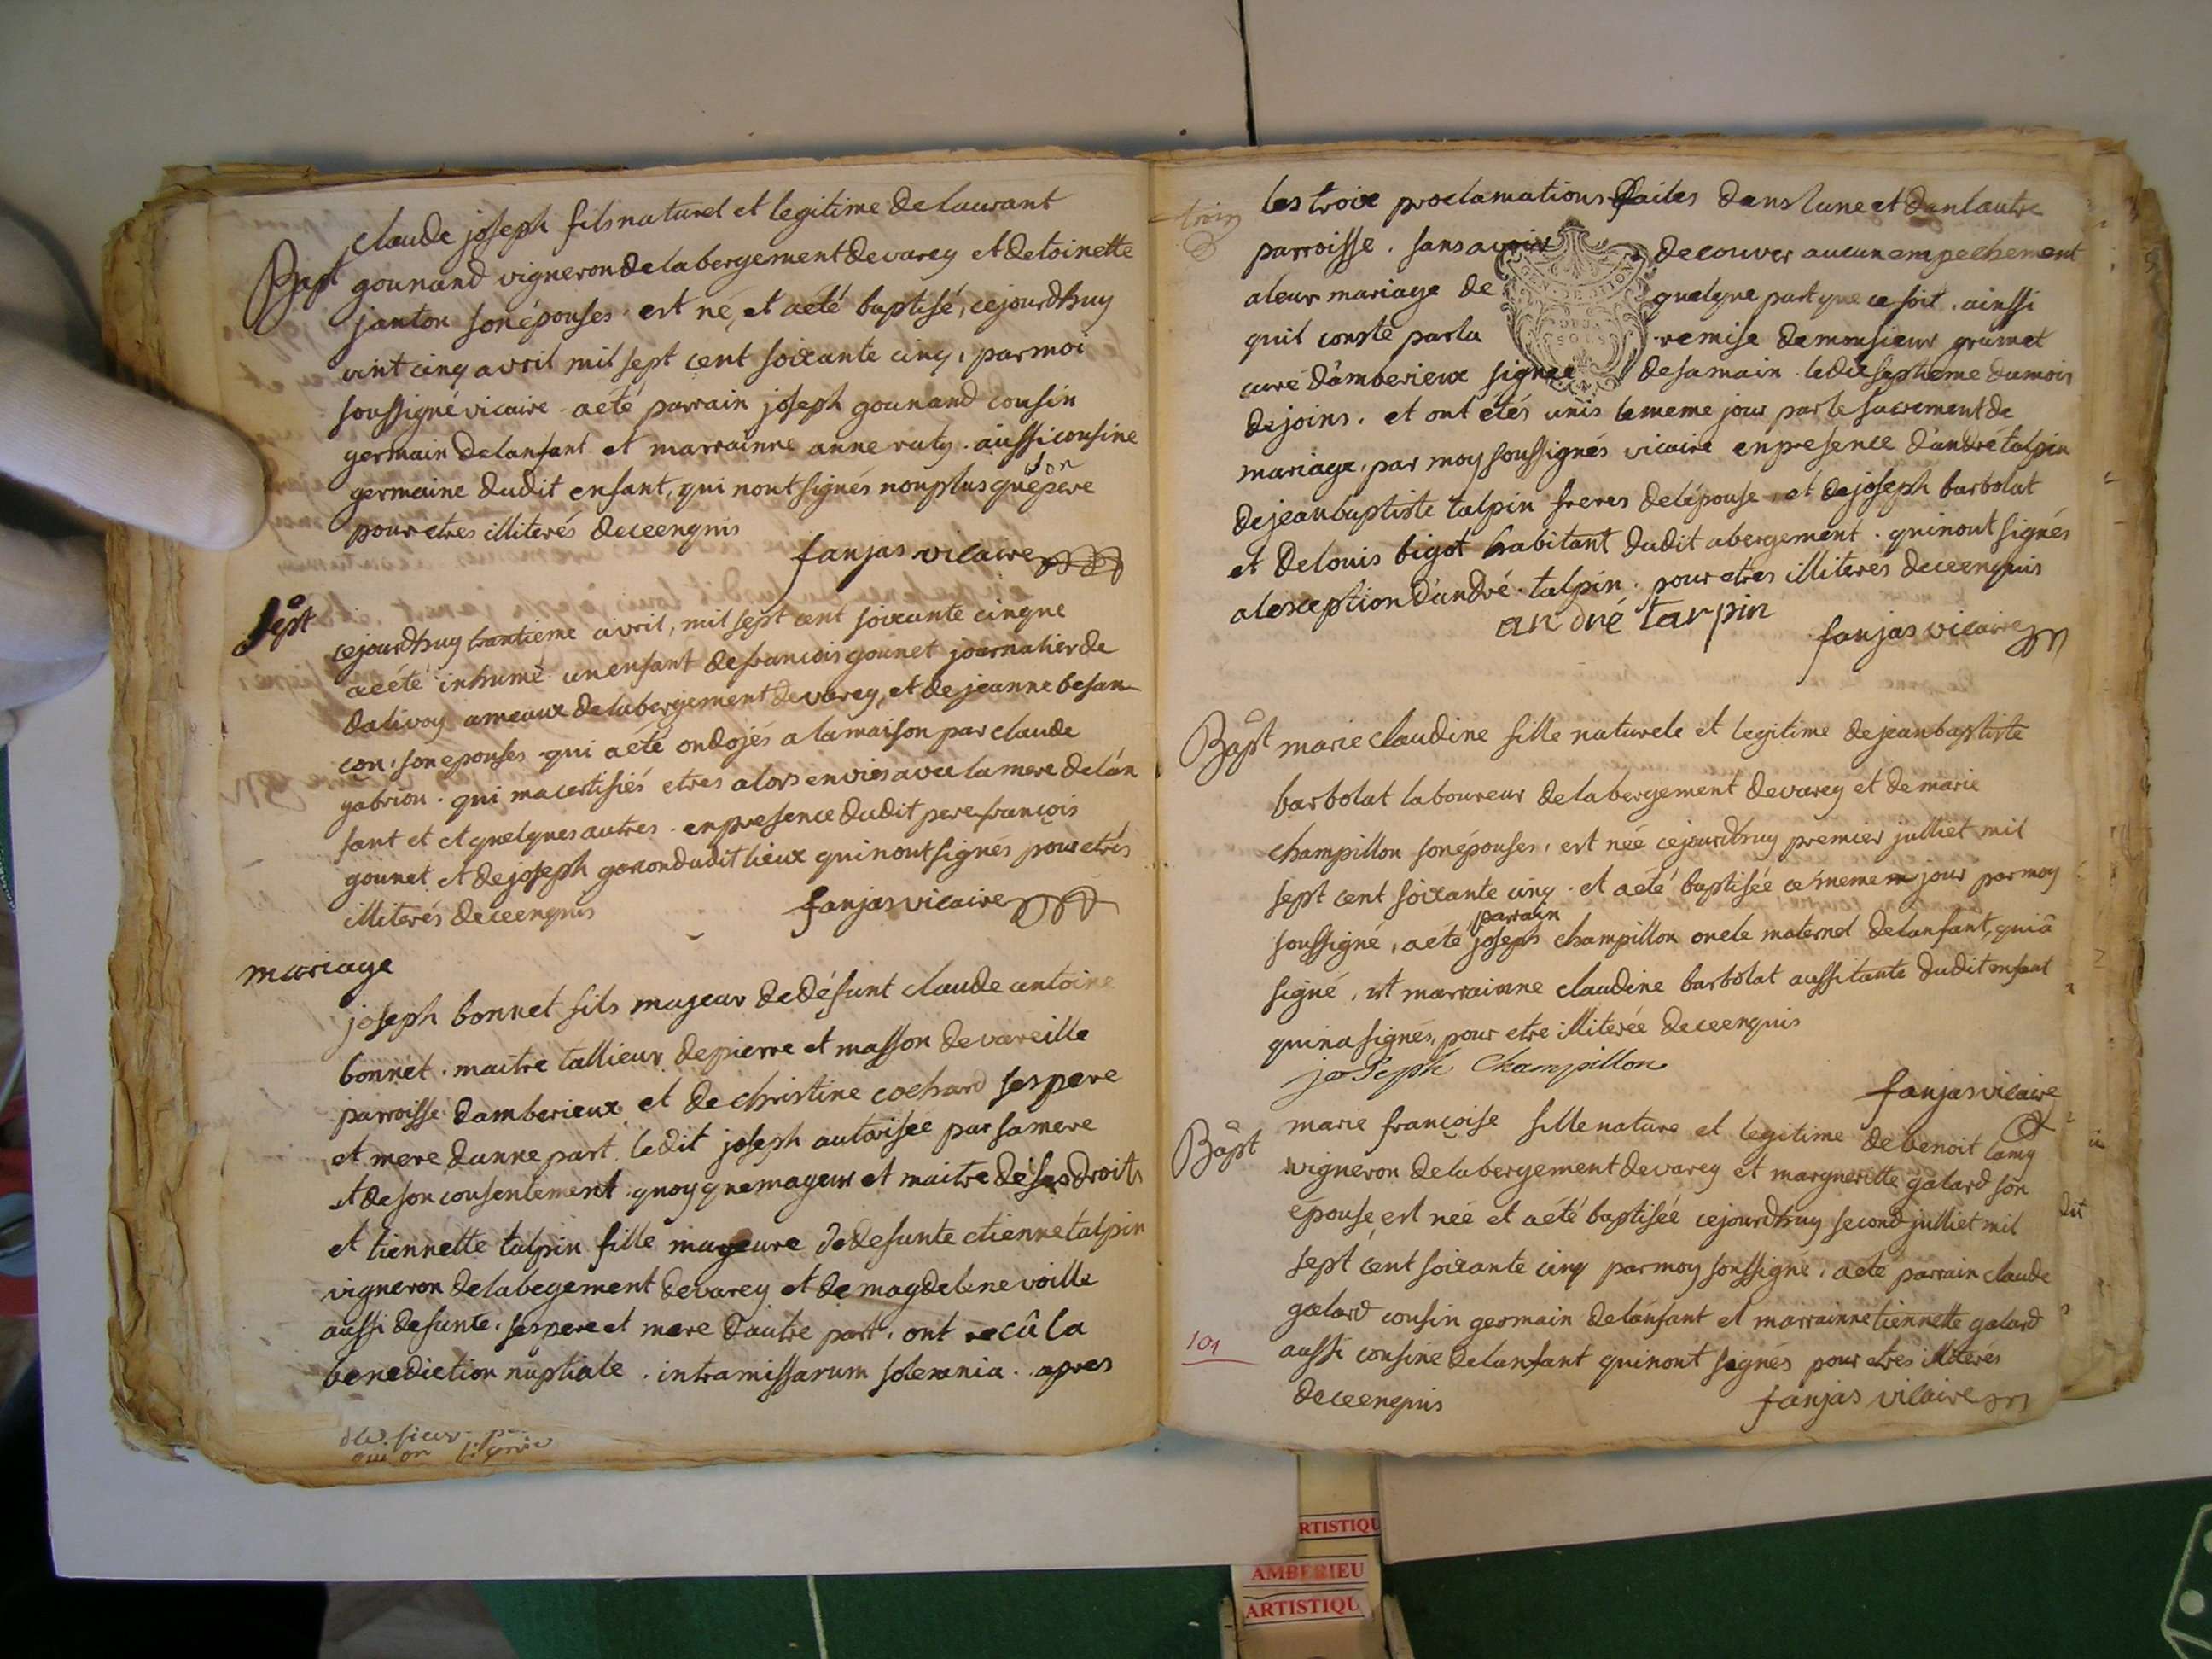 claude joseph fils naturel et legitime de laurant
Bapt gounand vigneron de labergement de varey et de toinette
janton son épouses est né, et a eté baptisé, cejourdhuy
vint cinq avril mil sept cent soixante cinq, par moi
soussigné vicaire a eté parrain joseph gounand cousin
germain de lanfant et marrainne anne ruty aussi cousine
germaine dudit enfant, qui nont signés non plus que son pere
pour etres illiterés de ce enquis
fanjas vicaire
Sept
cejourdhuy trantieme avril, mil sept cent soixante cinque
a eété inhumé un enfant de francois gounet journalier de
dalivoy ameaux de labergement de varey, et de jeanne besan
çon, son epouses qui a eté ondojés a la maison par claude
gabrion. qui ma certifiés etres alors en vies avec la mere de lan
fant et et quelques autres. en presence dudit pere françois
gounet et de joseph dudit lieux qui nont signés pour etrés
illiterés de ce enquis
fanjas vicaire
mariage
joseph bonnet fils majeur de défunt claude antoine
bonnet. maitre tallieur de pierre et masson de vareille
parroisse damberieux et de christine cochard ses pere
et mere dunne part. ledit joseph autorisée par sa mere
et de son consentement quoy que mageur et maitre de ses droits
et tiennette talpin fille mageure de defunte etienne talpin
vigneron de labegement de varey et de magdelene voille
aussi defunte, ses pere et mere d'autre part, ont recû la
benediction nuptiale. intra missarum solemnia. apres
les troix proclamations failes dans lune et dan lautre
parroisse. sans avoir decouver aucun empechement
a leur mariage de quelque part que ce soit. ainssi
quil conste par la remise de monsieur grumet
curé d'amberieux signée de sa main le dix septieme du mois
de joins. et ont étés unis le meme jour par le sacrement de
mariage, par moy soussignés vicaire en presence d'andré talpin
de jean baptiste talpin freres de lépouse, et de joseph barbolat
et de louis bigot habitant dudit abergement. qui nont signés
a lexception d'andvé talpin. pour etres illiterés de ce enquis
andré tarpin
fanjas vicaire
Bapt marie claudine fille naturele et legitime de jean baptiste
barbolat laboureur de labergement de varey et de marie
champillon son épouses, est née cejourdhuy premier julliet mil
sept cent soixante cinq. et a eté baptisée ce meme jour par moy
soussigné, a eté parrain joseph champillon oncle maternel de lanfant, qui a
signé, et marrainne claudine barbolat aussi tante dudit enfant
qui na signés, pour etre illiterée de ce enquis
joseph Champillon
fanjas vicaire
marie françoise fille nature et legitime de benoit lamy
Bapt vigneron de labergement de varey et margueritte galard son
épouse est née et a eté baptisée cejourdhuy second julliet mil
sept cent soixante cinq par moy soussigné. a eté parrain claude
galard cousin germain de lanfant et marrainne tiennette galard
101 aussi cousine de lanfant qui nont signés pour etres illiteres
de ce enquis fanjas vicaire
ARTISTIQU
AMBERIEU
ARTISTIQU